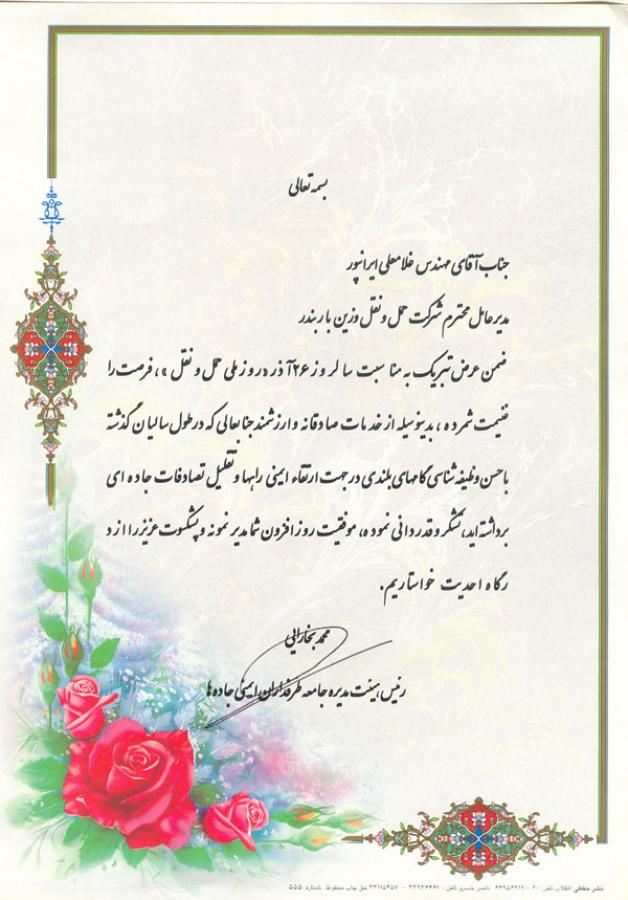 بسمه تعالی
جناب آقای مهندس غلامعلی ایرانپور
مدیر عامل محترم شرکت حمل و نقل وزین بار بندر
ضمن عرض تبریک به مناسبت سالروز ۲۶ آذر «روز ملی حمل و نقل»، فرصت را
غنیمت شمرده، بدینوسیله از خدمات صادقانه و ارزشمند جنابعالی که در طول سالیان گذشته
با حسن وظیفه شناسی گامهای بلندی در جهت ارتقاء ایمنی راهها و تقلیل تصادفات جاده ای
برداشته اید، تشکر و قدردانی نموده، موفقیت روز افزون شما مدیر نمونه و پیشکسوت عزیز را از د
رگاه احدیت خواستاریم.
محمد بخارائی
رئیس هیئت مدیره جامعه طرفداران ایمنی جاده ها
نشر حفظی انقلاب تلفن: ۲۰ - ۶۶۹۵۶۹۱۹ ناصر خسرو تلفن: ۳۳۹۳۶۴۶۱ - ۳۳۱۱۵۴۵۷ حق چاپ محفوظ. شماره ۵۵۵